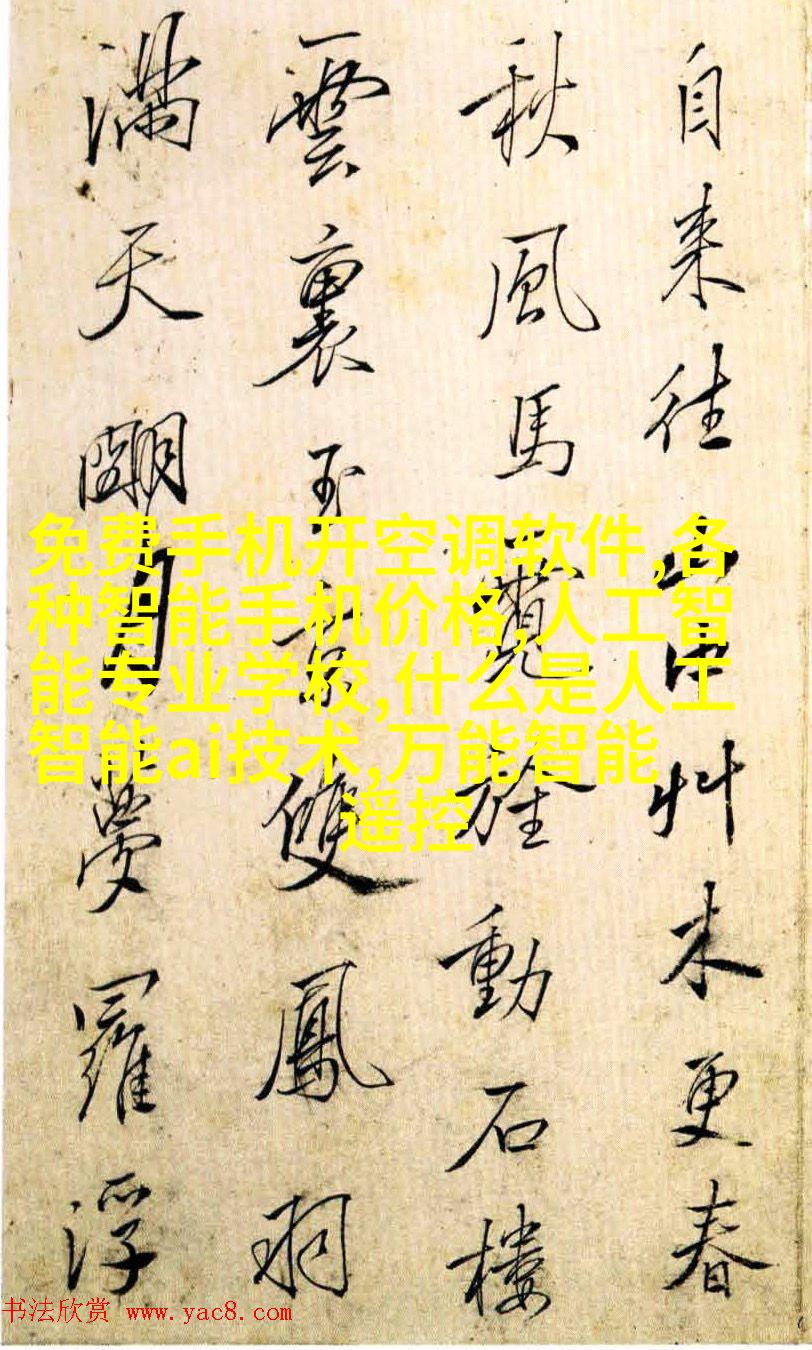 自来往山中艸更春
秋風馬旌動石樓
雲裏玉雙鳳羽
滿天明月夢羅浮
免费手机开空调软件,各
种智能手机价格,人工智
能专业学校,什么是人工
智能ai技术,万能智能
遥控
书法欣赏 www.yac8.com